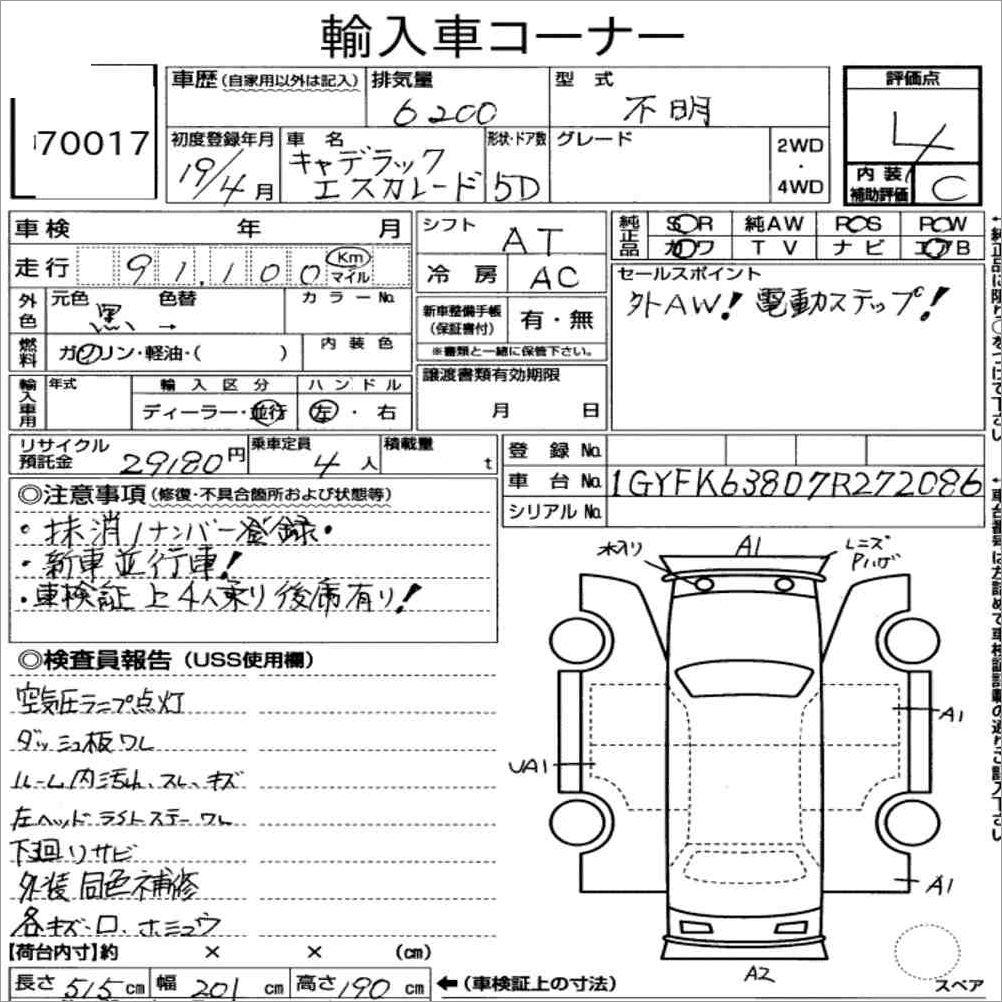 輸入車コーナー
70017
車歴(自家用以外は記入) 排気量 6200 型式 不明
評価点 4
初度登録年月 19/4月 車名 キャデラック エスカレード 形状・ドア数 5D グレード 2WD・4WD
内装補助評価 C
車検 年 月
シフト AT
純正品 SOR 純AW POS POW
カワ TV ナビ エアB
走行 91,100 Km マイル
冷房 AC
セールスポイント
外AW! 電動ステップ!
外色 元色 黒 色替 → カラーNo.
新車整備手帳(保証書付) 有・無
※書類と一緒に保管下さい。
燃料 ガソリン・軽油・( ) 内装色
譲渡書類有効期限
月 日
輸入車用 年式 輸入区分 ハンドル
ディーラー・並行 左・右
リサイクル預託金 29180円 乗車定員 4人 積載量 t
登録No.
車台No. 1GYFK63807R272086
シリアルNo.
◎注意事項(修復・不具合箇所および状態等)
・抹消/ナンバー登録・
・新車並行車!
・車検証上4人乗り後席有り!
◎検査員報告(USS使用欄)
空気圧ランプ点灯
ダッシュ板ワレ
ルーム内汚れ、スレ、キズ
左ヘッドライトステーワレ
下廻りサビ
外装同色補修
各キズ・ロ、ホミュウ
水入り
A1
レンズ
Pハゲ
A1
UA1
A1
A2
スペア
【荷台内寸】約 × × (cm)
長さ 515cm 幅 201cm 高さ 190cm ←(車検証上の寸法)
↑純正品に限り○をつけて下さい
↑車台番号は左詰めで車検証記載の通りご記入下さい